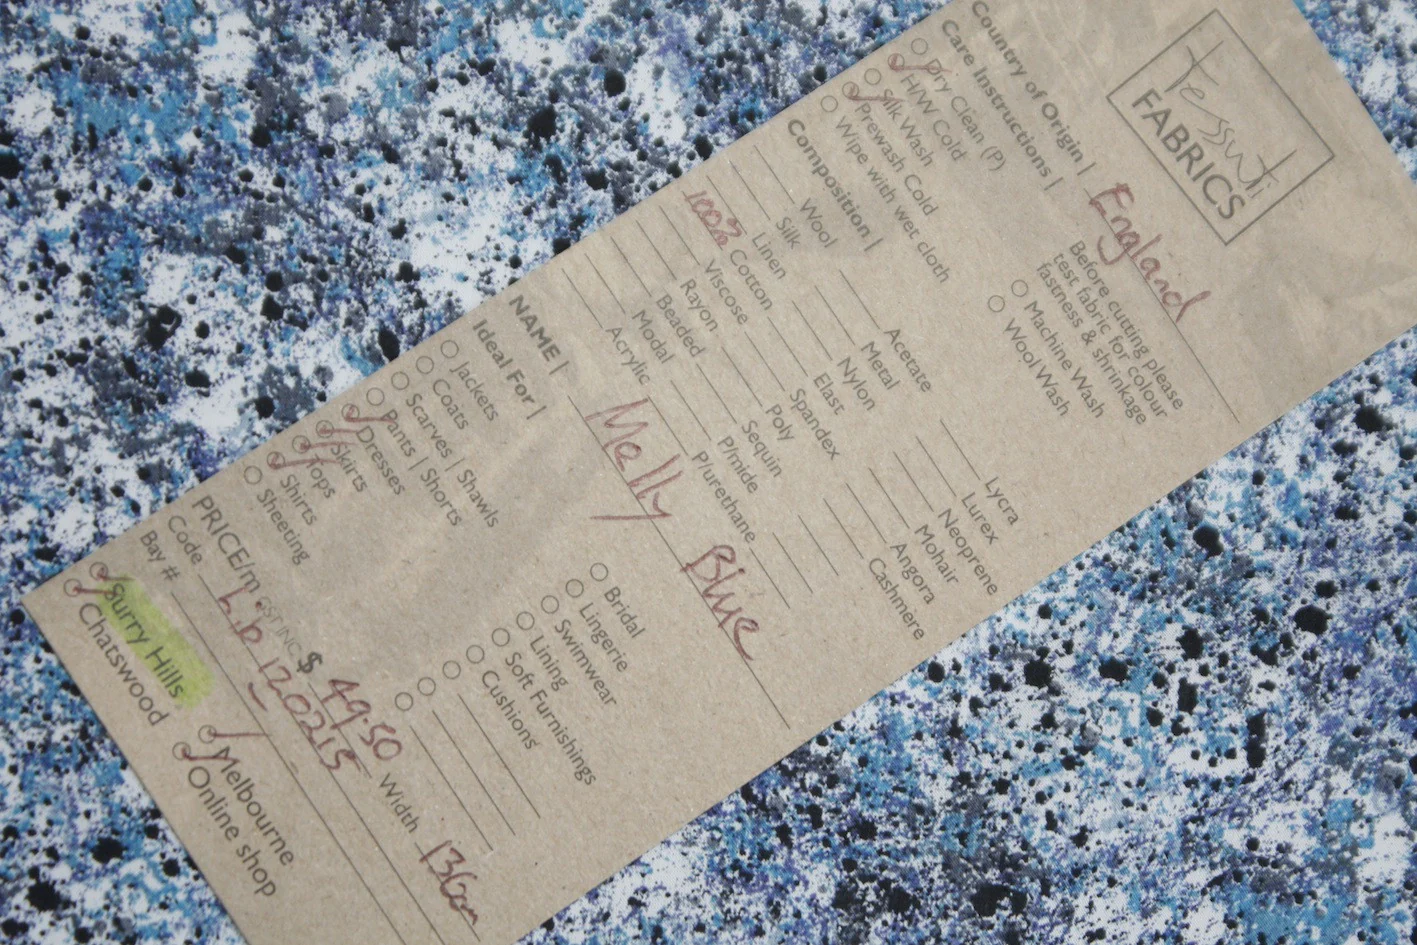 Tessuti
FABRICS
Country of Origin | England
Care Instructions |
Before cutting please
test fabric for colour
fastness & shrinkage
Dry Clean (P)
H/W Cold
Silk Wash
Prewash Cold
Wipe with wet cloth
Machine Wash
Wool Wash
Composition |
Wool
Silk
Linen
100% Cotton
Viscose
Rayon
Beaded
Modal
Acrylic
Acetate
Metal
Nylon
Elast
Spandex
Poly
Sequin
P/mide
P/urethane
Lycra
Lurex
Neoprene
Mohair
Angora
Cashmere
NAME | Melly Blue
Ideal For |
Jackets
Coats
Scarves | Shawls
Pants | Shorts
Dresses
Skirts
Tops
Shirts
Sheeting
Bridal
Lingerie
Swimwear
Lining
Soft Furnishings
Cushions
PRICE/m GST INC $ 49.50 Width 136cm
Code Lib 120215
Bay #
Surry Hills
Chatswood
Melbourne
Online shop